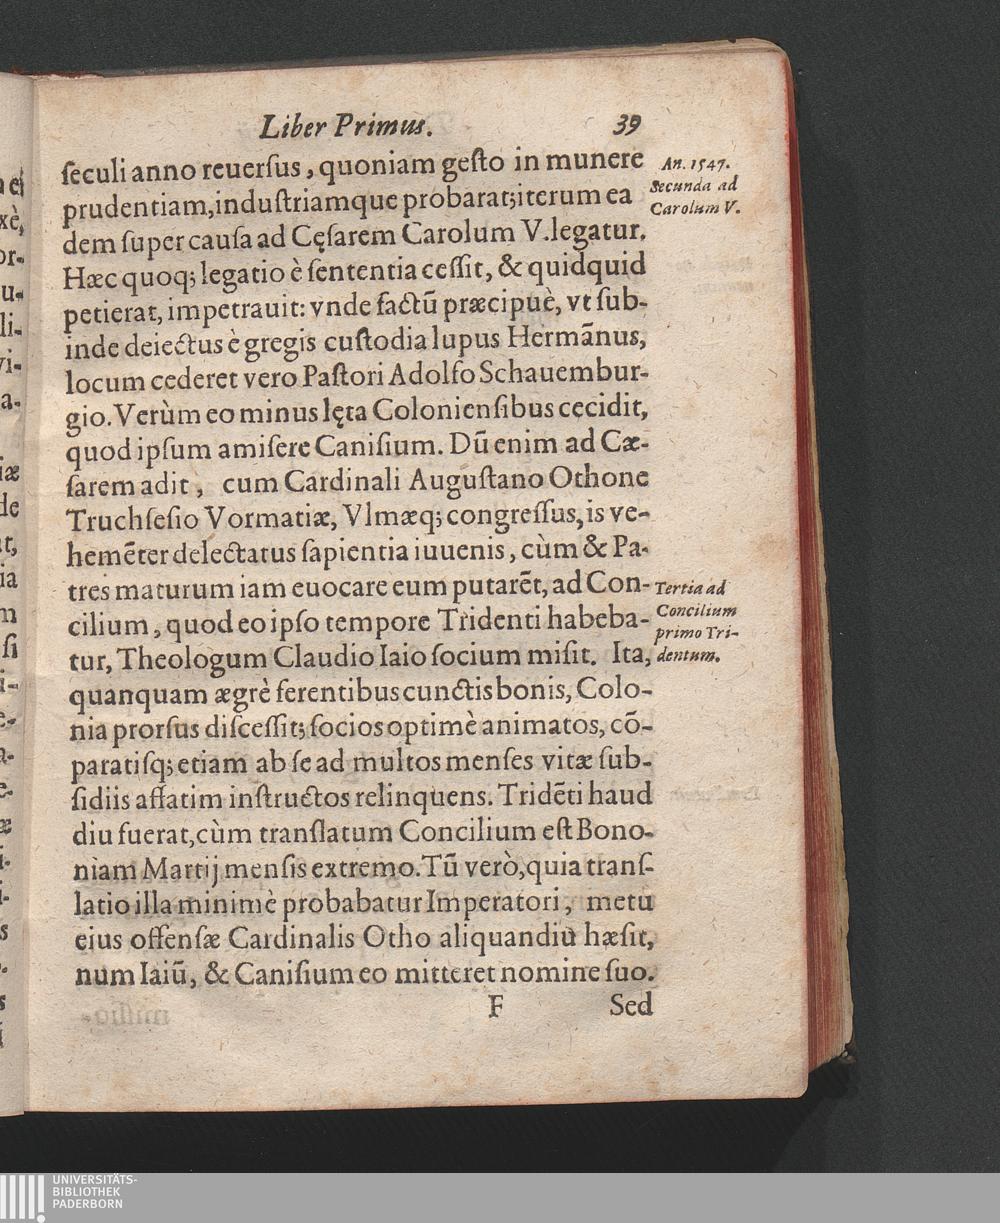 Liber Primus. 39
ſeculi anno reuerſus, quoniam geſto in munere
prudentiam, induſtriamque probarat; iterum ea
dem ſuper cauſa ad Cęſarem Carolum V. legatur.
Hæc quoq; legatio è ſententia ceſſit, & quidquid
petierat, impetrauit: vnde factū præcipuè, vt ſub-
inde deiectus è gregis cuſtodia lupus Hermānus,
locum cederet vero Paſtori Adolfo Schauembur-
gio. Verùm eo minus lęta Colonienſibus cecidit,
quod ipſum amiſere Caniſium. Dū enim ad Cæ-
ſarem adit, cum Cardinali Auguſtano Othone
Truchſeſio Vormatiæ, Vlmæq; congreſſus, is ve-
hemēter delectatus ſapientia iuuenis, cùm & Pa-
tres maturum iam euocare eum putarēt, ad Con-
cilium, quod eo ipſo tempore Tridenti habeba-
tur, Theologum Claudio Iaio ſocium miſit. Ita,
quanquam ægrè ferentibus cunctis bonis, Colo-
nia prorſus diſceſſit; ſocios optimè animatos, cō-
paratiſq; etiam ab ſe ad multos menſes vitæ ſub-
ſidiis affatim inſtructos relinquens. Tridēti haud
diu fuerat, cùm translatum Concilium eſt Bono-
niam Martij menſis extremo. Tū verò, quia tranſ-
latio illa minimè probabatur Imperatori, metu
eius offenſæ Cardinalis Otho aliquandiù hæſit,
num Iaiū, & Caniſium eo mitteret nomine ſuo.
F Sed
An. 1547.
Secunda ad
Carolum V.
Tertia ad
Concilium
primo Tri-
dentum.
UNIVERSITÄTS-
BIBLIOTHEK
PADERBORN